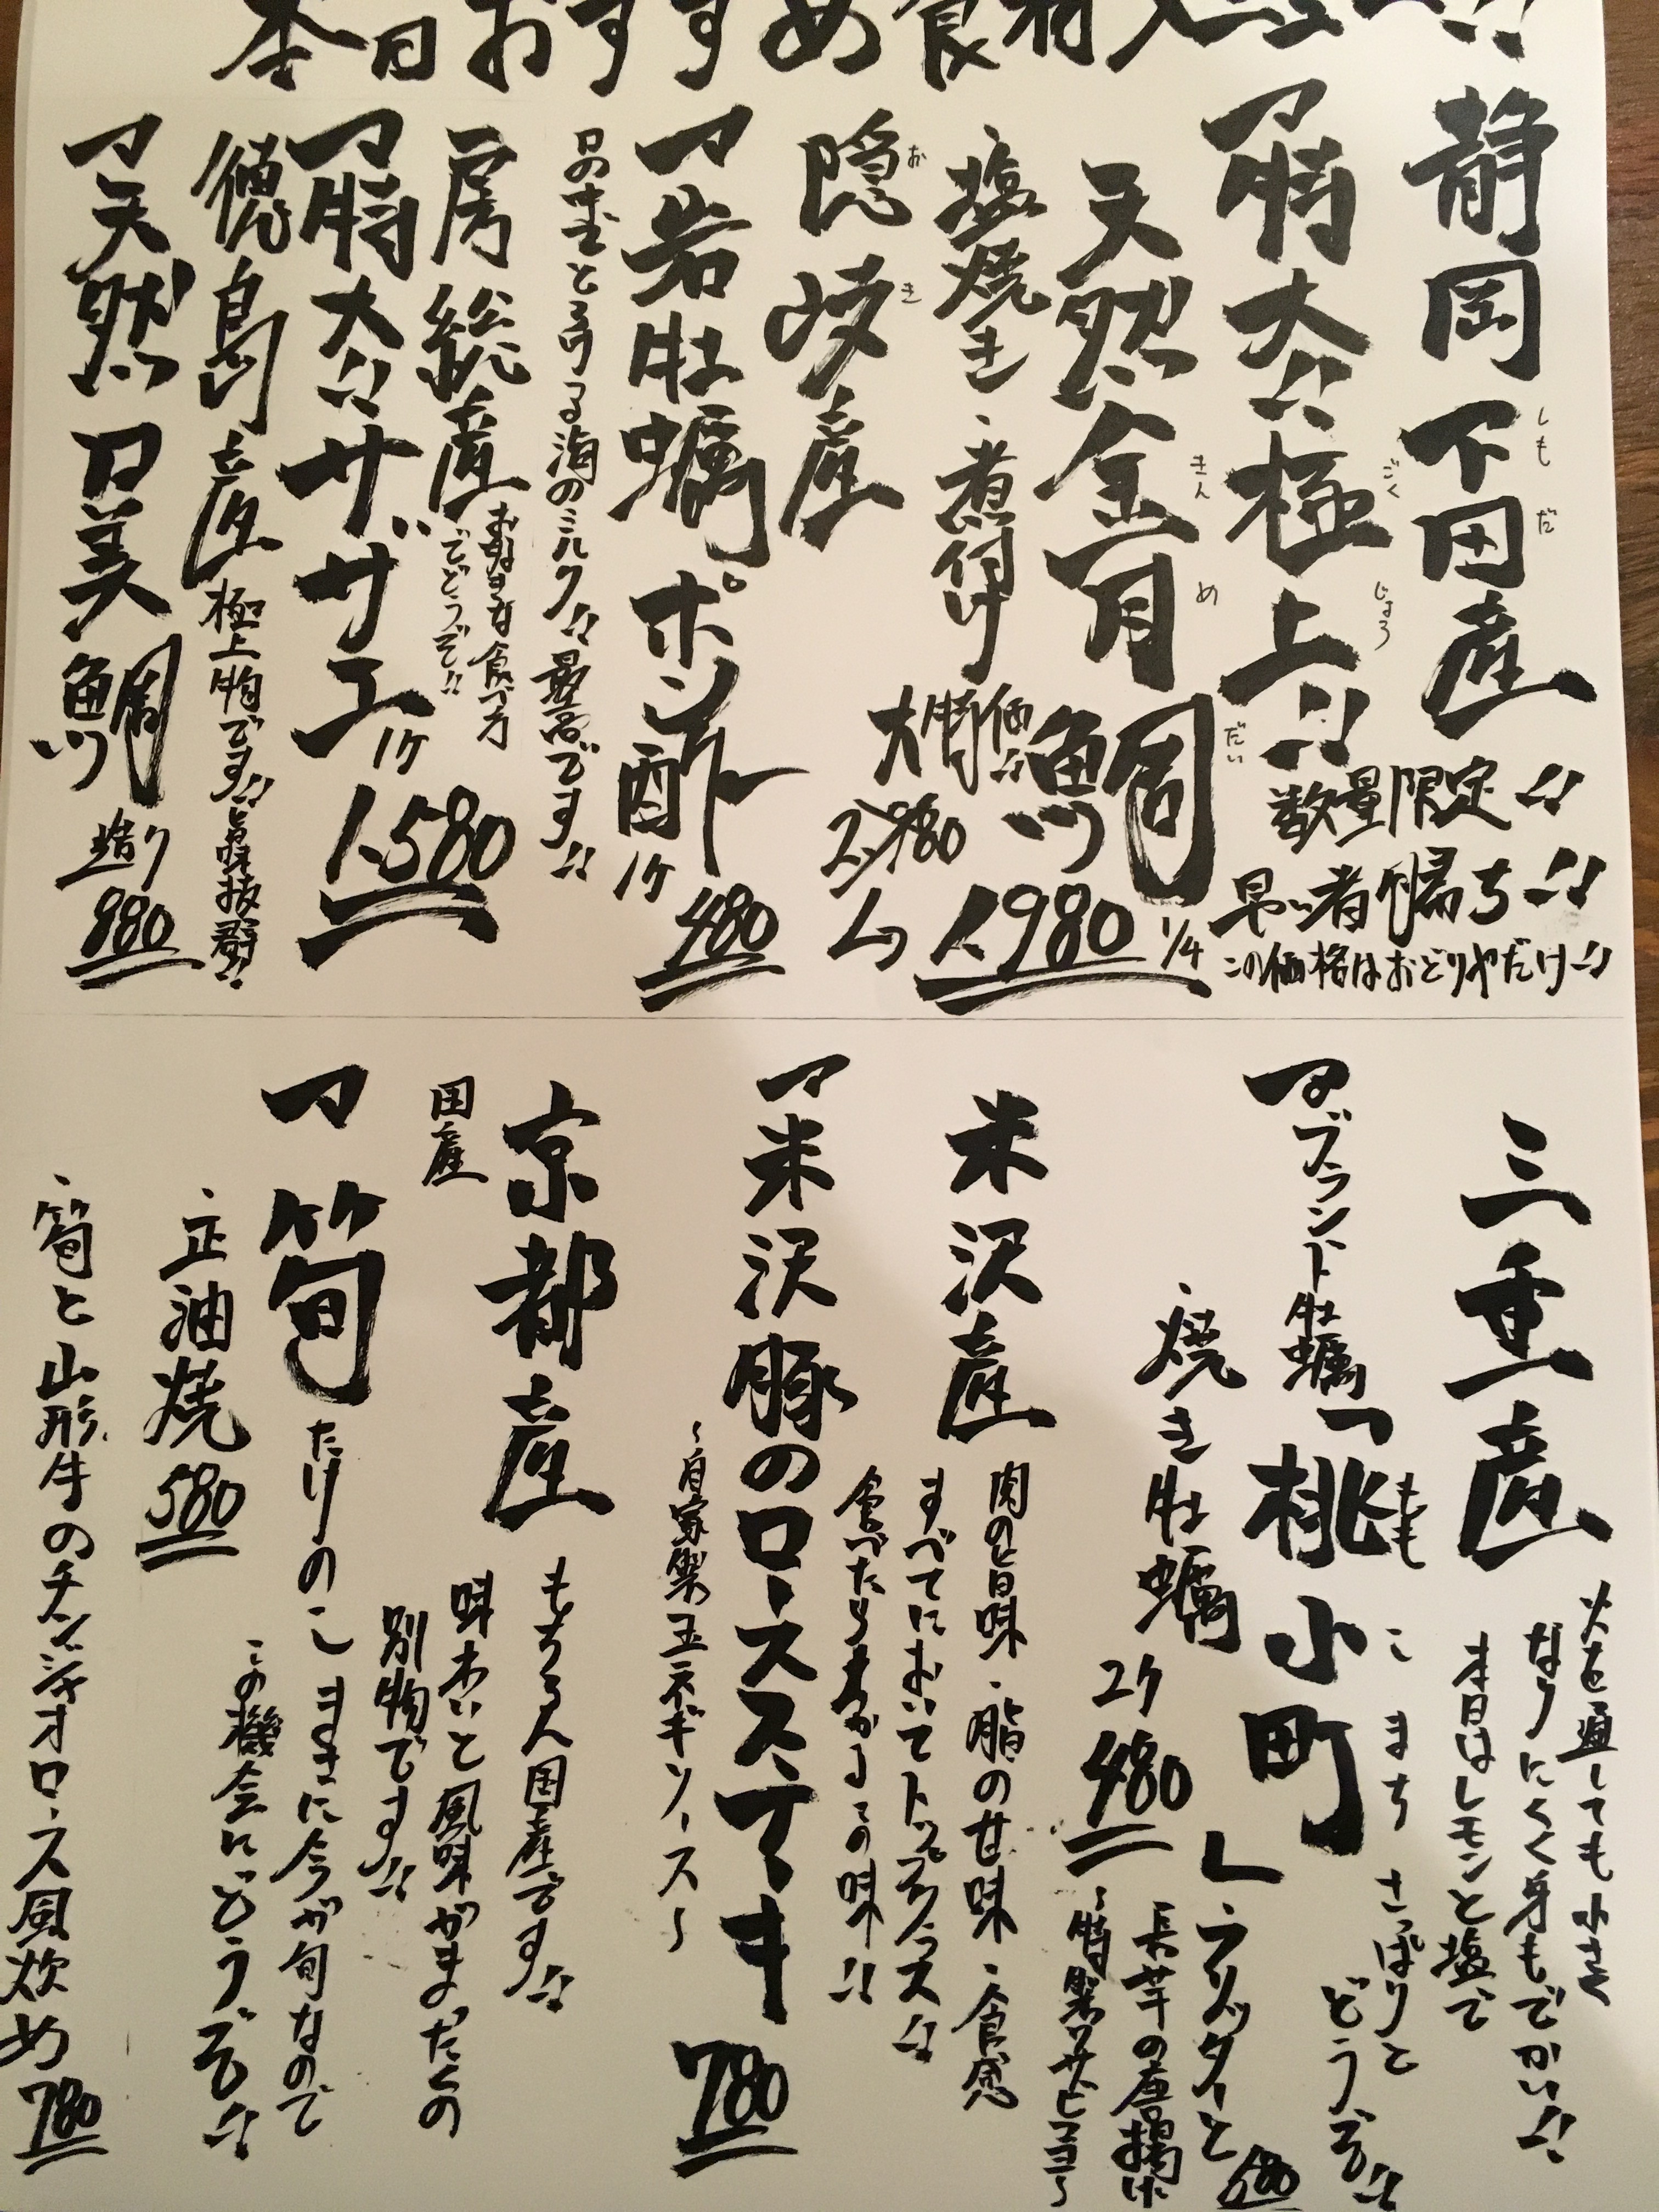 本日おすすめ食材メニュー!!
静岡下田産
しもだ
特大!!極上!!
ごくじょう
数量限定!!
早い者勝ち!!
この価格はおどりやだけ!!
天然金目鯛
きんめだい
1/4
・塩焼き・煮付け
大特価!!
2,980
1,980
隠岐産
おき
岩牡蠣ポン酢
1ケ
480
口の中でとろける海のミルク!!最高です!!
房総産
お好きな食べ方
でどうぞ!!
特大!!サザエ
1ケ
1,580
徳島産
極上物です!!旨味抜群!!
天然口美鯛
造り
880
三重産
火を通しても小さく
なりにくく身もでかい!!
本日はレモンと塩で
さっぱりと
どうぞ!!
ブランド牡蠣「桃小町」
ももこまち
・焼き牡蠣
2ケ
480
フリッターと
長芋の唐揚げ
〜特製ワサビマヨ〜
580
米沢産
肉の旨味・脂の甘味・食感
すべてにおいてトップクラス!!
食べたらわかるこの味!!
米沢豚のロースステーキ
〜自家製玉ネギソース〜
780
京都産
もちろん国産です!!
味わいと風味がまったくの
別物です!!
国産
筍
たけのこ
まさに今が旬なので
この機会にどうぞ!!
・正油焼
580
・筍と山形牛のチンジャオロース風炒め
780